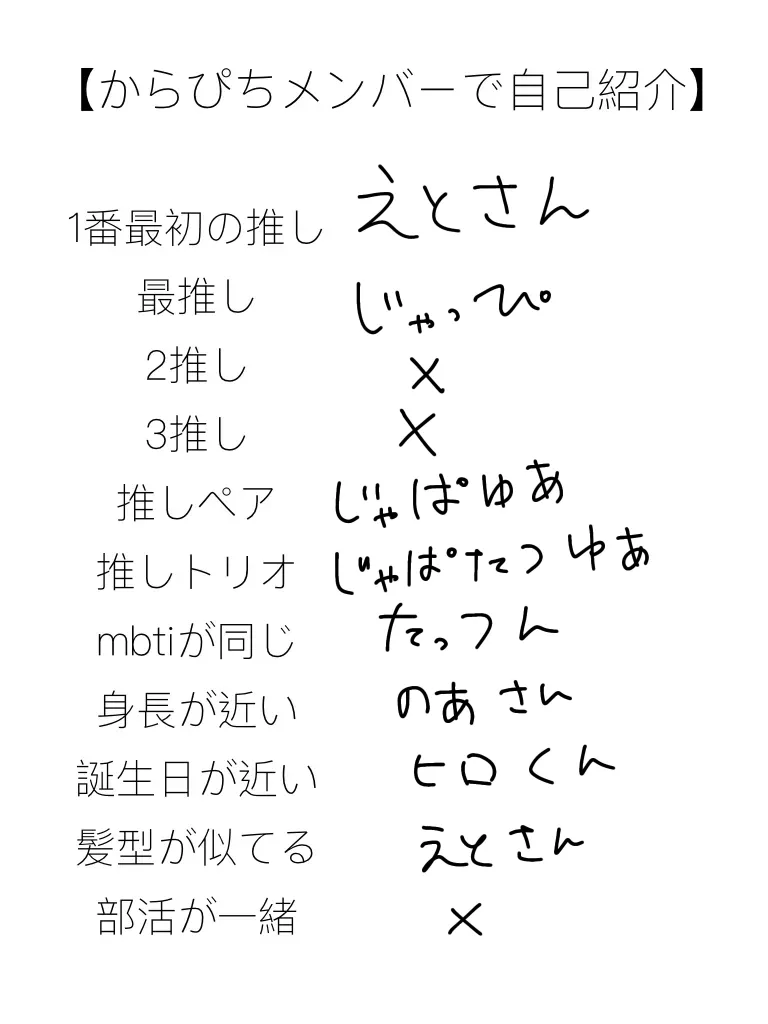 【からぴちメンバーで自己紹介】
1番最初の推し えとさん
最推し じゃっぴ
2推し ×
3推し ×
推しペア じゃぱゆあ
推しトリオ じゃぱたつゆあ
mbtiが同じ たっつん
身長が近い のあさん
誕生日が近い ヒロくん
髪型が似てる えとさん
部活が一緒 ×